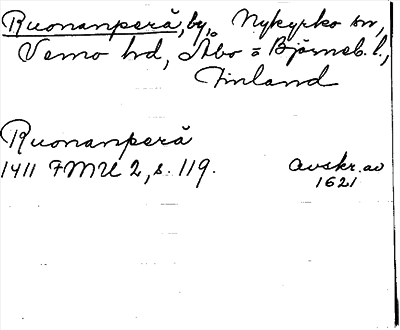 Ruonanperä, by, Nykyrko sn,
Vemo hd, Åbo o Björneb. l.,
Finland
Ruonanperä
1411 FMU 2, s. 119. avskr. av
1621